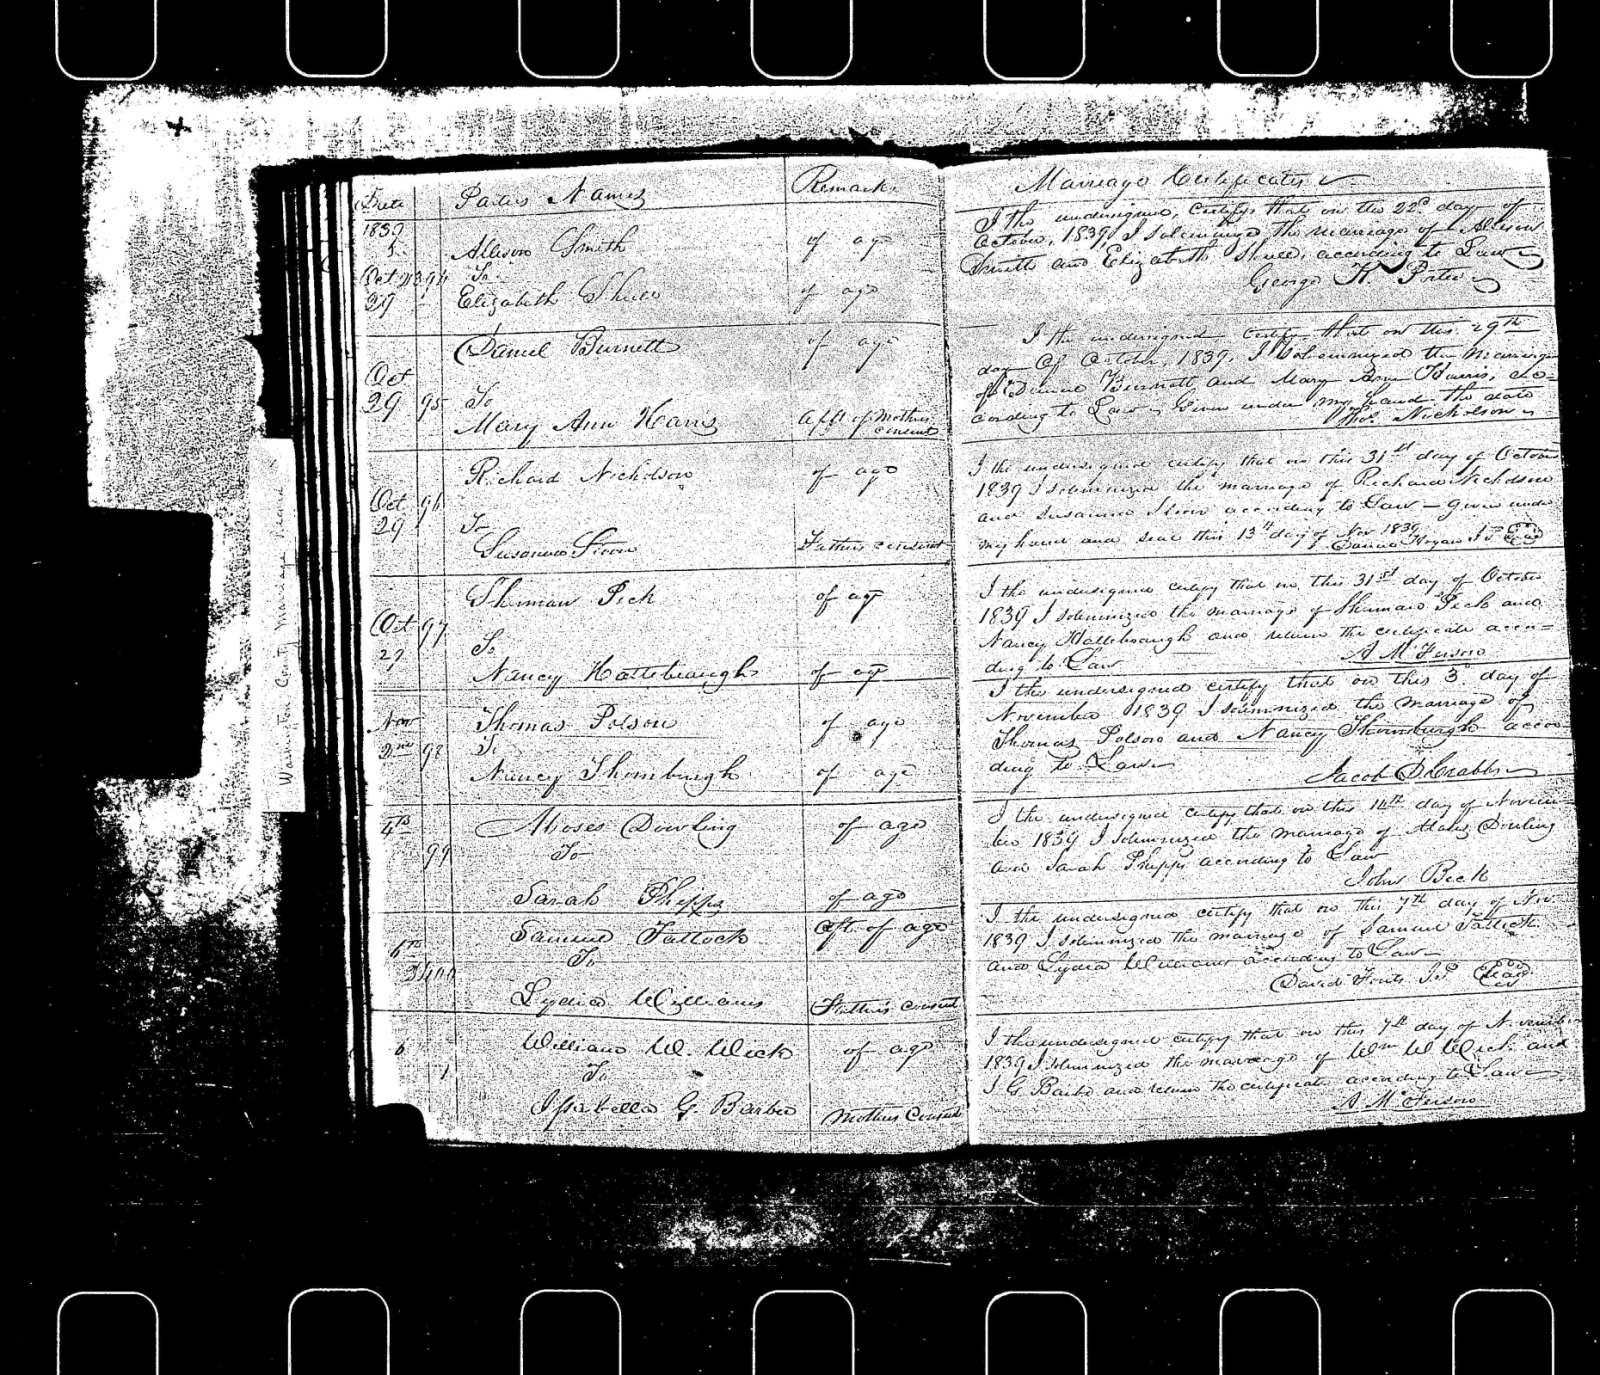 Date Parties Names Remarks
1839
Allison Smith of age
Oct 394 To
29 Elizabeth of age
Daniel Burnett of age
Oct
29 95 To
Mary Ann Harris afft of Mothers
consent
Richard Nicholson of age
Oct 96
29 To
Susanna Fathers consent
Sherman Peck of age
Oct 97
29 To
Nancy Hattebraugh of age
Nov Thomas Polson of age
2nd 98 To
Nancy Thornburgh of age
4th Moses Dowling of age
99 To
Sarah Phipps of age
Samuel Tattock aft. of age
6th To
3400
Lydia Williams Fathers consent
William W. Wick of age
6 To
1
Issabella G. Barber Mothers Consent
Marriage Certificates
I the undersigned, certify that on the 22d day of
October, 1839, I solemnized the marriage of Allison
Smith and Elizabeth according to Law
George K.
I the undersigned certify that on this 29th
day of October, 1839, I solemnized the marriage
of Daniel Burnett and Mary Ann Harris, ac=
cording to Law Given under my hand the date
Thos. Nicholson
I the undersigned certify that on this 31st day of October
1839 I solemnized the marriage of Richard Nicholson
and Susanna according to Law — given under
my hand and seal this 13th day of Nov 1839
J P Seal
I the undersigned certify that on this 31st day of October
1839 I solemnized the marriage of Sherman Peck and
Nancy Hattebraugh and return the certificate accor=
ding to Law A McFerson
I the undersigned certify that on this 3d day of
November 1839 I solemnized the marriage of
Thomas Polson and Nancy Thornburgh accor
ding to Law
Jacob D Crabbs
I the undersigned certify that on this 14th day of Novem
ber 1839 I solemnized the marriage of Moses Dowling
and Sarah Phipps according to Law
John Beck
I the undersigned certify that on this 7th day of Nov.
1839 I solemnized the marriage of Samuel Tattock
and Lydia Williams according to Law
David Fouts J.P Seal
I the undersigned certify that on this 7th day of Novemb
1839 I solemnized the marriage of Wm W Wick and
I G Barber and return the certificate according to Law
A McFerson
Washington County Marriage Record